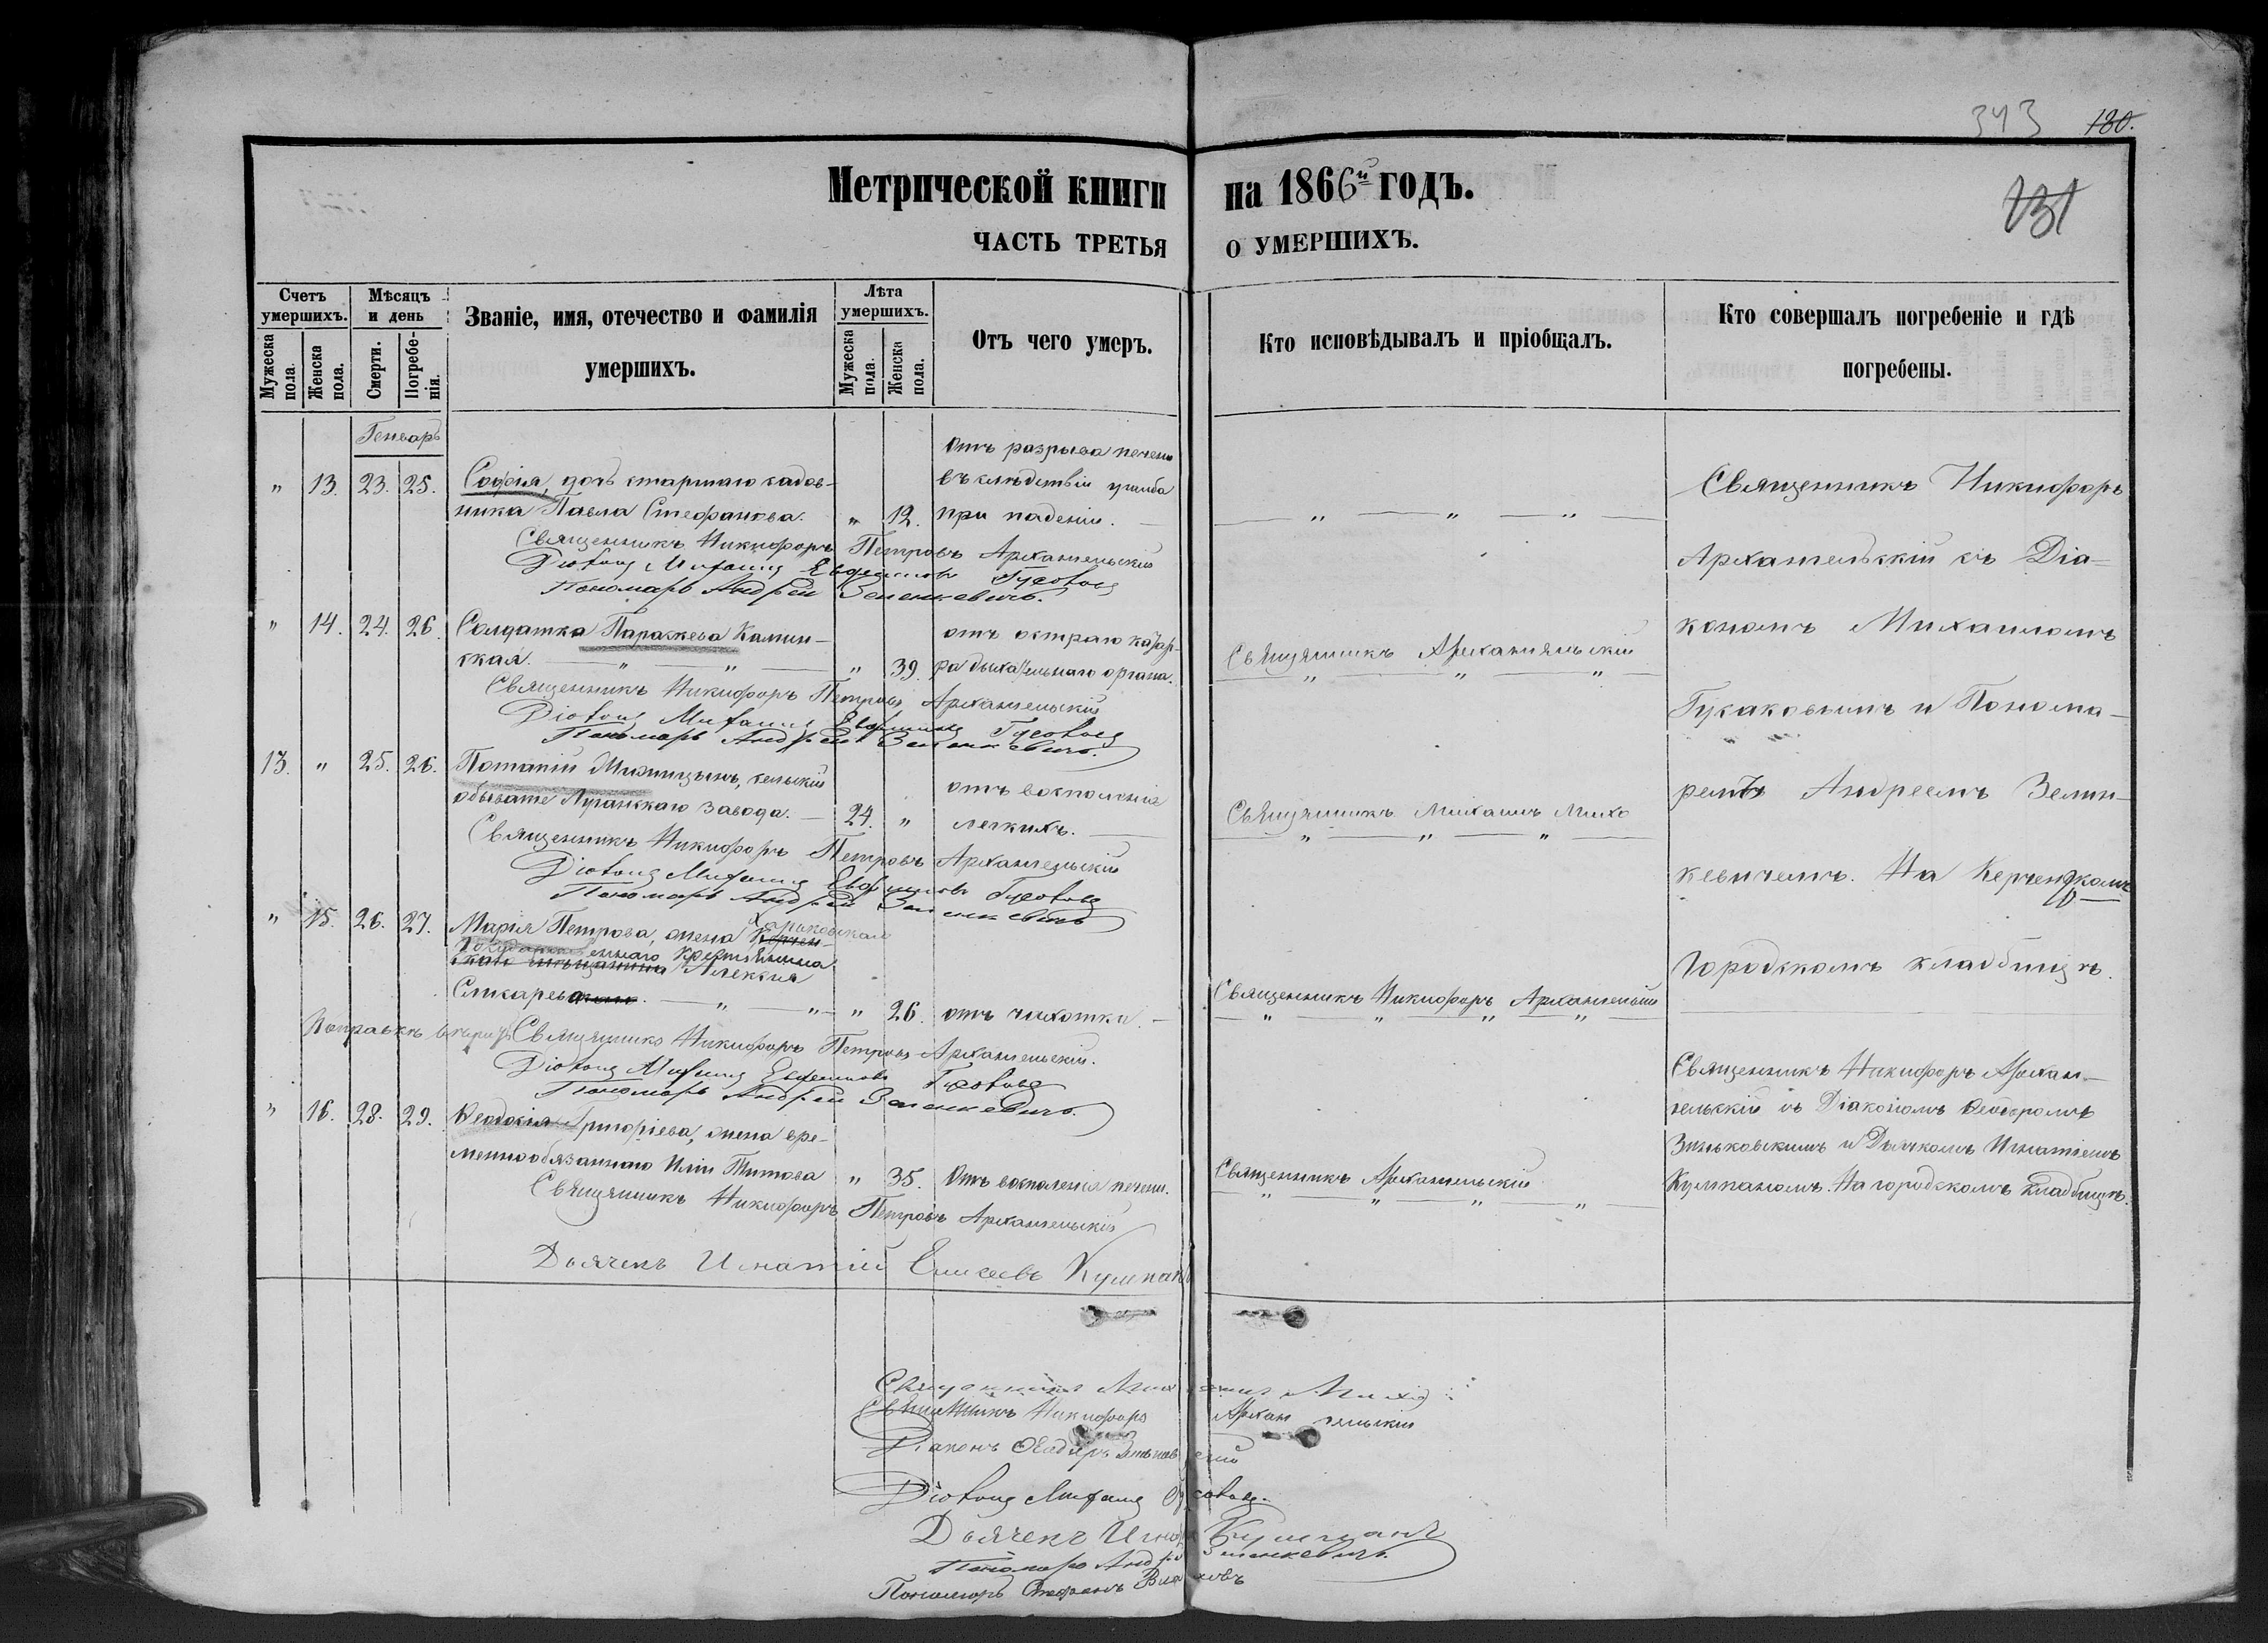 343 180.
Метрической книги на 1866й годъ.
131
ЧАСТЬ ТРЕТЬЯ О УМЕРШИХЪ.
Счетъ умершихъ.
Мужеска пола.
Женска пола.
Мѣсяцъ и день
Смерти.
Погребенія.
Званіе, имя, отечество и фамилія
умершихъ.
Лѣта умершихъ.
Мужеска пола.
Женска пола.
Отъ чего умеръ.
Кто исповѣдывалъ и пріобщалъ.
Кто совершалъ погребеніе и гдѣ
погребены.
Генварь
" 13. 23. 25.
Софія, дочь старшаго садов-
ника Павла Стефанова. " 12.
Отъ разрыва печени
въ слѣдствіи ушиба
при паденіи.
" " "
Священникъ Никифоръ Петровъ Архангельскій
Діаконъ Михаилъ Евфимовъ
Пономарь Андрей Зеленкевичъ.
" 14. 24. 26.
Солдатка Параскева Камин-
ская. " " " 39.
отъ остраго катар-
ра дыхательнаго органа.
Священникъ Архангельскій
" " "
Священникъ Никифоръ Петровъ Архангельскій
Діаконъ Михаилъ Евфимовъ
Пономарь Андрей Зеленкевичъ.
13. " 25. 26.
Потапій сельскій
обывате Луганскаго завода. 24. "
отъ воспаленія
легкихъ.
Священникъ Михаилъ Михо
" " "
Священникъ Никифоръ Петровъ Архангельскій
Діаконъ Михаилъ Евфимовъ
Пономарь Андрей Зеленкевичъ
" 15. 26. 27.
Марія Петрова, жена Керчен-
Харьковскаго
Государственнаго Крестьянина
скаго мѣщанина Алексія
Слюсарева. " " " 26. отъ чихотки.
Священникъ Никифоръ Архангельскій
" " " "
Священникъ Никифоръ Петровъ Архангельскій.
Діаконъ Михаилъ Евфимовъ
Пономарь Андрей Зеленкевичъ.
" 16. 28. 29.
Ѳеодосія Григоріева, жена вре-
меннообязаннаго Иліи Титова " 35. Отъ воспаленія печени.
Священникъ Архангельскій
" " " "
Священникъ Никифоръ Петровъ Архангельскій
Дьячекъ Игнатій Елисеевъ Кулшанъ
Священникъ Никифоръ
Архангельскій съ Діа-
кономъ Михаиломъ
и Понома-
ремъ Андреемъ Зелин-
кевичемъ. На Керченскомъ
Городскомъ кладбищѣ.
Священникъ Никифоръ Архан-
гельскій съ Діакономъ Ѳеодоромъ
Зиньковскимъ и Дьячкомъ Игнатіемъ
Кулшаномъ. На городскомъ кладбищѣ.
Священникъ Михаилъ Михо
Священникъ Никифоръ Архангельскій
Діаконъ Ѳеодоръ Зиньковскій
Діаконъ Михаилъ
Дьячекъ Игнатій Кулшанъ
Пономарь Андрей Зеленкевичъ.
Пономарь Стефанъ